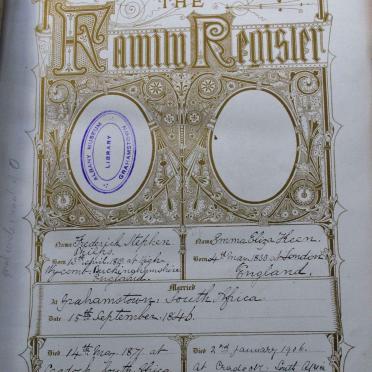 THE
Family Register
ALBANY MUSEUM
LIBRARY
GRAHAMSTOWN
Name Frederick Stephen
Born 15th April, at High
Wycombe Buckinghamshire
England.
Name Emma Eliza Keen.
Born 4th May 1830 at London
England.
Married
At Grahamstown, South Africa
Date 15th September, 1846.
Died 14th May, 1871 at
Cradock, South Africa
Died 2nd January 1906.
At Cradock, South Africa